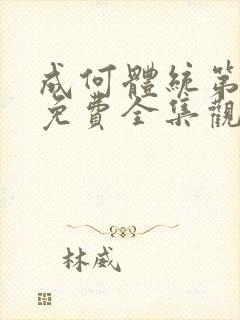 成何體統第
免費全集觀
林威